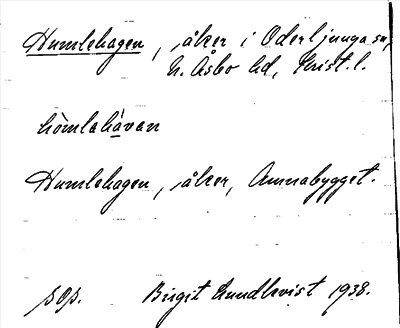 Humlehagen, åker i Oderljunga sn,
N. Åsbo hd, Krist. l.
hòmlahávan
Humlehagen, åker, Annabygget.
sOp. Birgit Lundkvist 1938.